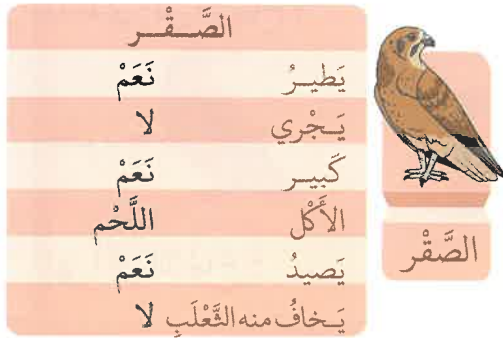 الصَّـــقْـــر
يَطيـرُ نَعَمْ
يَـجْري لا
كَبيـر نَعَمْ
الأَكْل اللَّحْم
يَصيدُ نَعَمْ
يَـخافُ منه الثَّعْلَبِ لا
الصَّقْر